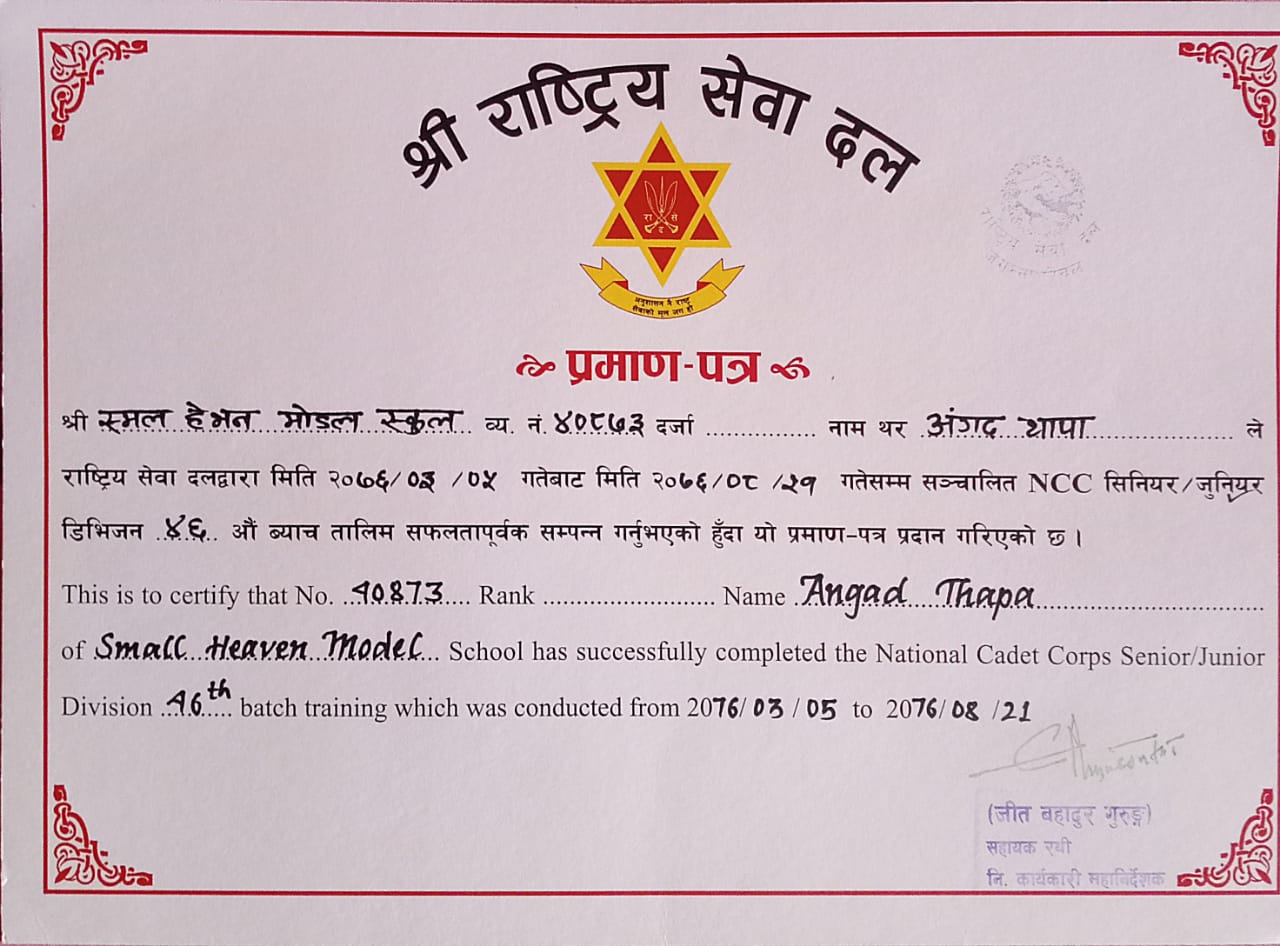 श्री राष्ट्रिय सेवा दल
रा से
द
अनुशासन नै राष्ट्र
सेवाको मूल जग हो
राष्ट्रिय सेवा दल
प्रमाण-पत्र
श्री स्मल हेभन मोडल स्कुल व्य. नं. ४०८७३ दर्जा ................ नाम थर अंगद थापा ले
राष्ट्रिय सेवा दलद्वारा मिति २०७६/०३/०५ गतेबाट मिति २०७६/०८/२१ गतेसम्म सञ्चालित NCC सिनियर/जुनियर
डिभिजन ४६ औं ब्याच तालिम सफलतापूर्वक सम्पन्न गर्नुभएको हुँदा यो प्रमाण-पत्र प्रदान गरिएको छ।
This is to certify that No. 40873 Rank ......................... Name Angad Thapa
of Small Heaven Model School has successfully completed the National Cadet Corps Senior/Junior
Division 46th batch training which was conducted from 2076/03/05 to 2076/08/21
(जीत बहादुर गुरुङ्ग)
सहायक रथी
नि. कार्यकारी महानिर्देशक